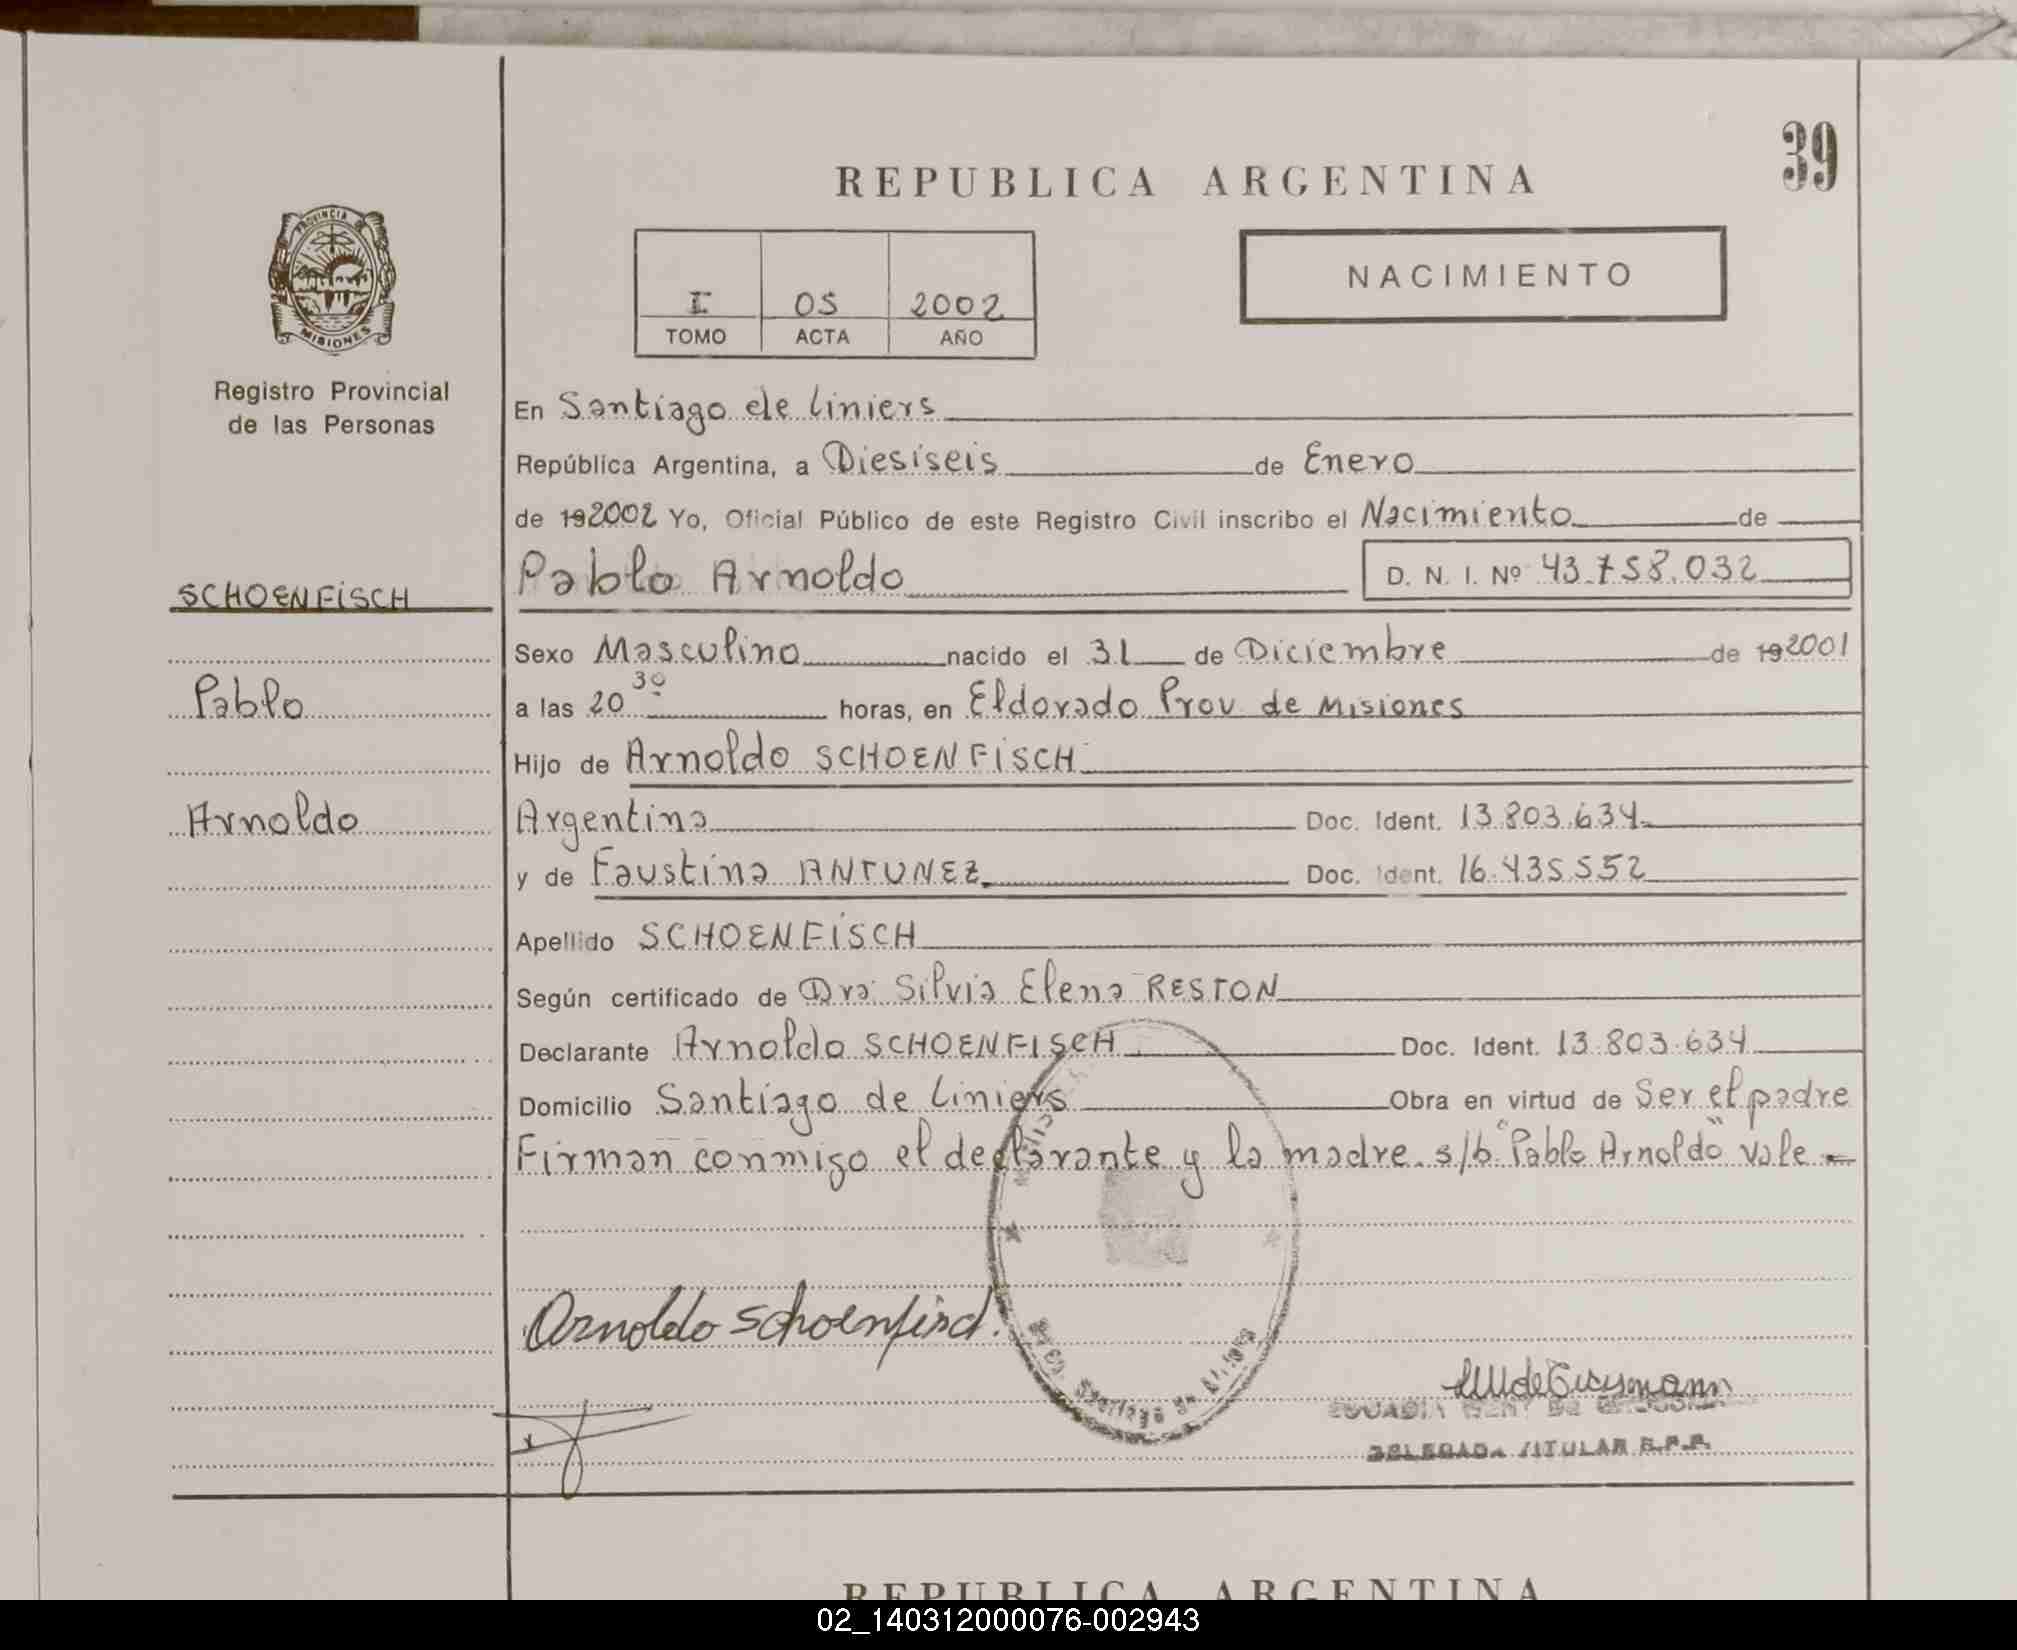 39
REPUBLICA ARGENTINA
PROVINCIA DE
MISIONES
I 05 2002
TOMO ACTA AÑO
NACIMIENTO
Registro Provincial
de las Personas
En Santiago de Liniers
República Argentina, a Diesiseis de Enero
de 192002 Yo, Oficial Público de este Registro Civil inscribo el Nacimiento de
SCHOENFISCH
Pablo Arnoldo D. N. I. Nº 43.758.032
Sexo Masculino nacido el 31 de Diciembre de 192001
Pablo
a las 20 30 horas, en Eldorado Prov de Misiones
Hijo de Arnoldo SCHOENFISCH
Arnoldo
Argentina Doc. Ident. 13.803.634
y de Faustina ANTUNEZ Doc. Ident. 16.435.552
Apellido SCHOENFISCH
Según certificado de Dra. Silvia Elena RESTON
Declarante Arnoldo SCHOENFISCH Doc. Ident. 13.803.634
Domicilio Santiago de Liniers Obra en virtud de Ser el padre
Firman conmigo el declarante y la madre. s/b "Pablo Arnoldo" vale
Arnoldo Schoenfisch.
Santiago de Liniers
DELEGADA TITULAR R.P.P.
REPUBLICA ARGENTINA
02_140312000076-002943